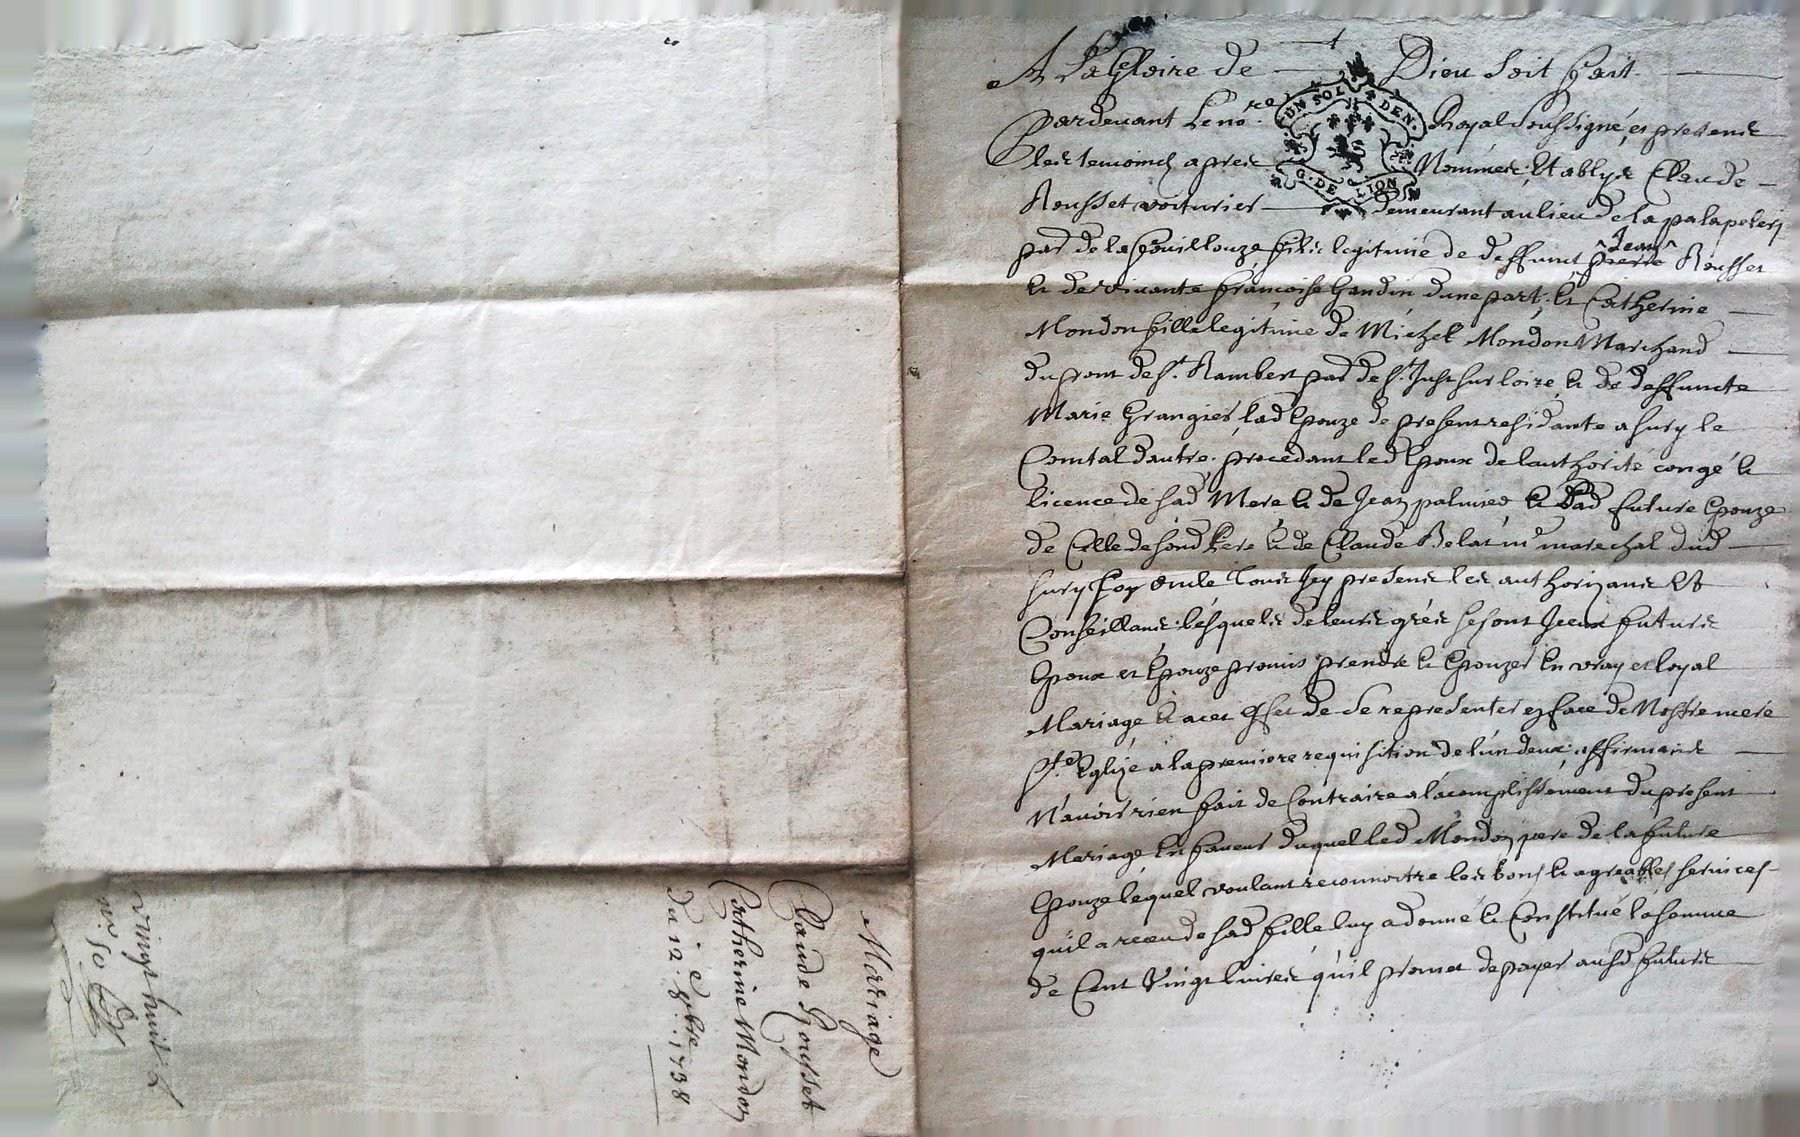 A La Gloire de Dieu Soit fait
pardevant Le no.re Royal Soussigné, et presents
les temoins apres Nommés; Etablys Claude
Rousset voiturier demeurant au lieu de la palapelery
UN SOL DEN.
G. DE LION
par de la fouillouze fils legitime de deffunt pierre ^Jean^ Rousset
et de vivante françoise Gandin dune part; et Catherine
Mondon fille legitime de Michel Mondon Marchand
du pont de St. Rambert par de St. Just sur loire, et de deffuncte
Marie Grangier, lad Epouze de present residante a Sury le
Comtal dautre; procedant led Epoux de lauthorité congé et
licence de sad Mere et de Jean palmier et Lad future Epouze
de Celle de sond Pere et de Claude Belac marechal dud
Sury tous Icy presents les authorizants Et
Conseillants; lesquels de leurs grés se sont Iceux futurs
Epoux et Epouze promis prendre et Epouzer En vray et loyal
Mariage et a cet effet de Se representer en face de Nostre mere
Ste. Eglize a la premiere requisition de lun deux; affirmants
N'avoir rien fait de Contraire a lacomplissement du present
Mariage En faveur duquel led Mondon pere de la future
Epouze lequel voulant reconnoitre les bons et agreables services
quil a receu de sad fille luy a donné et Constitué la somme
de Cent Vingt livres quil promet de payer ausd futurs
Mariage
Claude Rousset
Catherine Mondon
Du 12.e 8bre. 1738
vingt huit